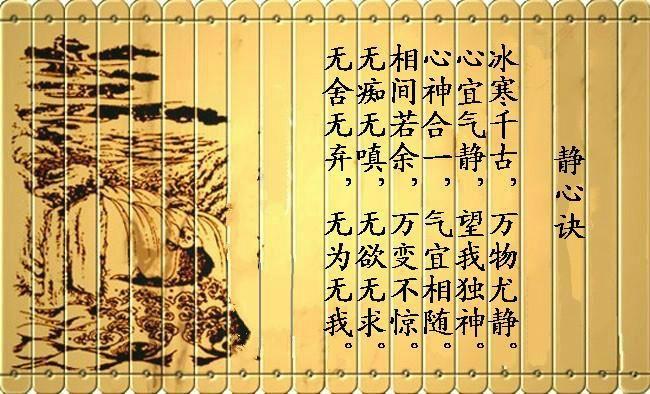 静心诀
冰寒千古，万物尤静。
心宜气静，望我独神。
心神合一，气宜相随。
相间若余，万变不惊。
无痴无嗔，无欲无求。
无舍无弃，无为无我。